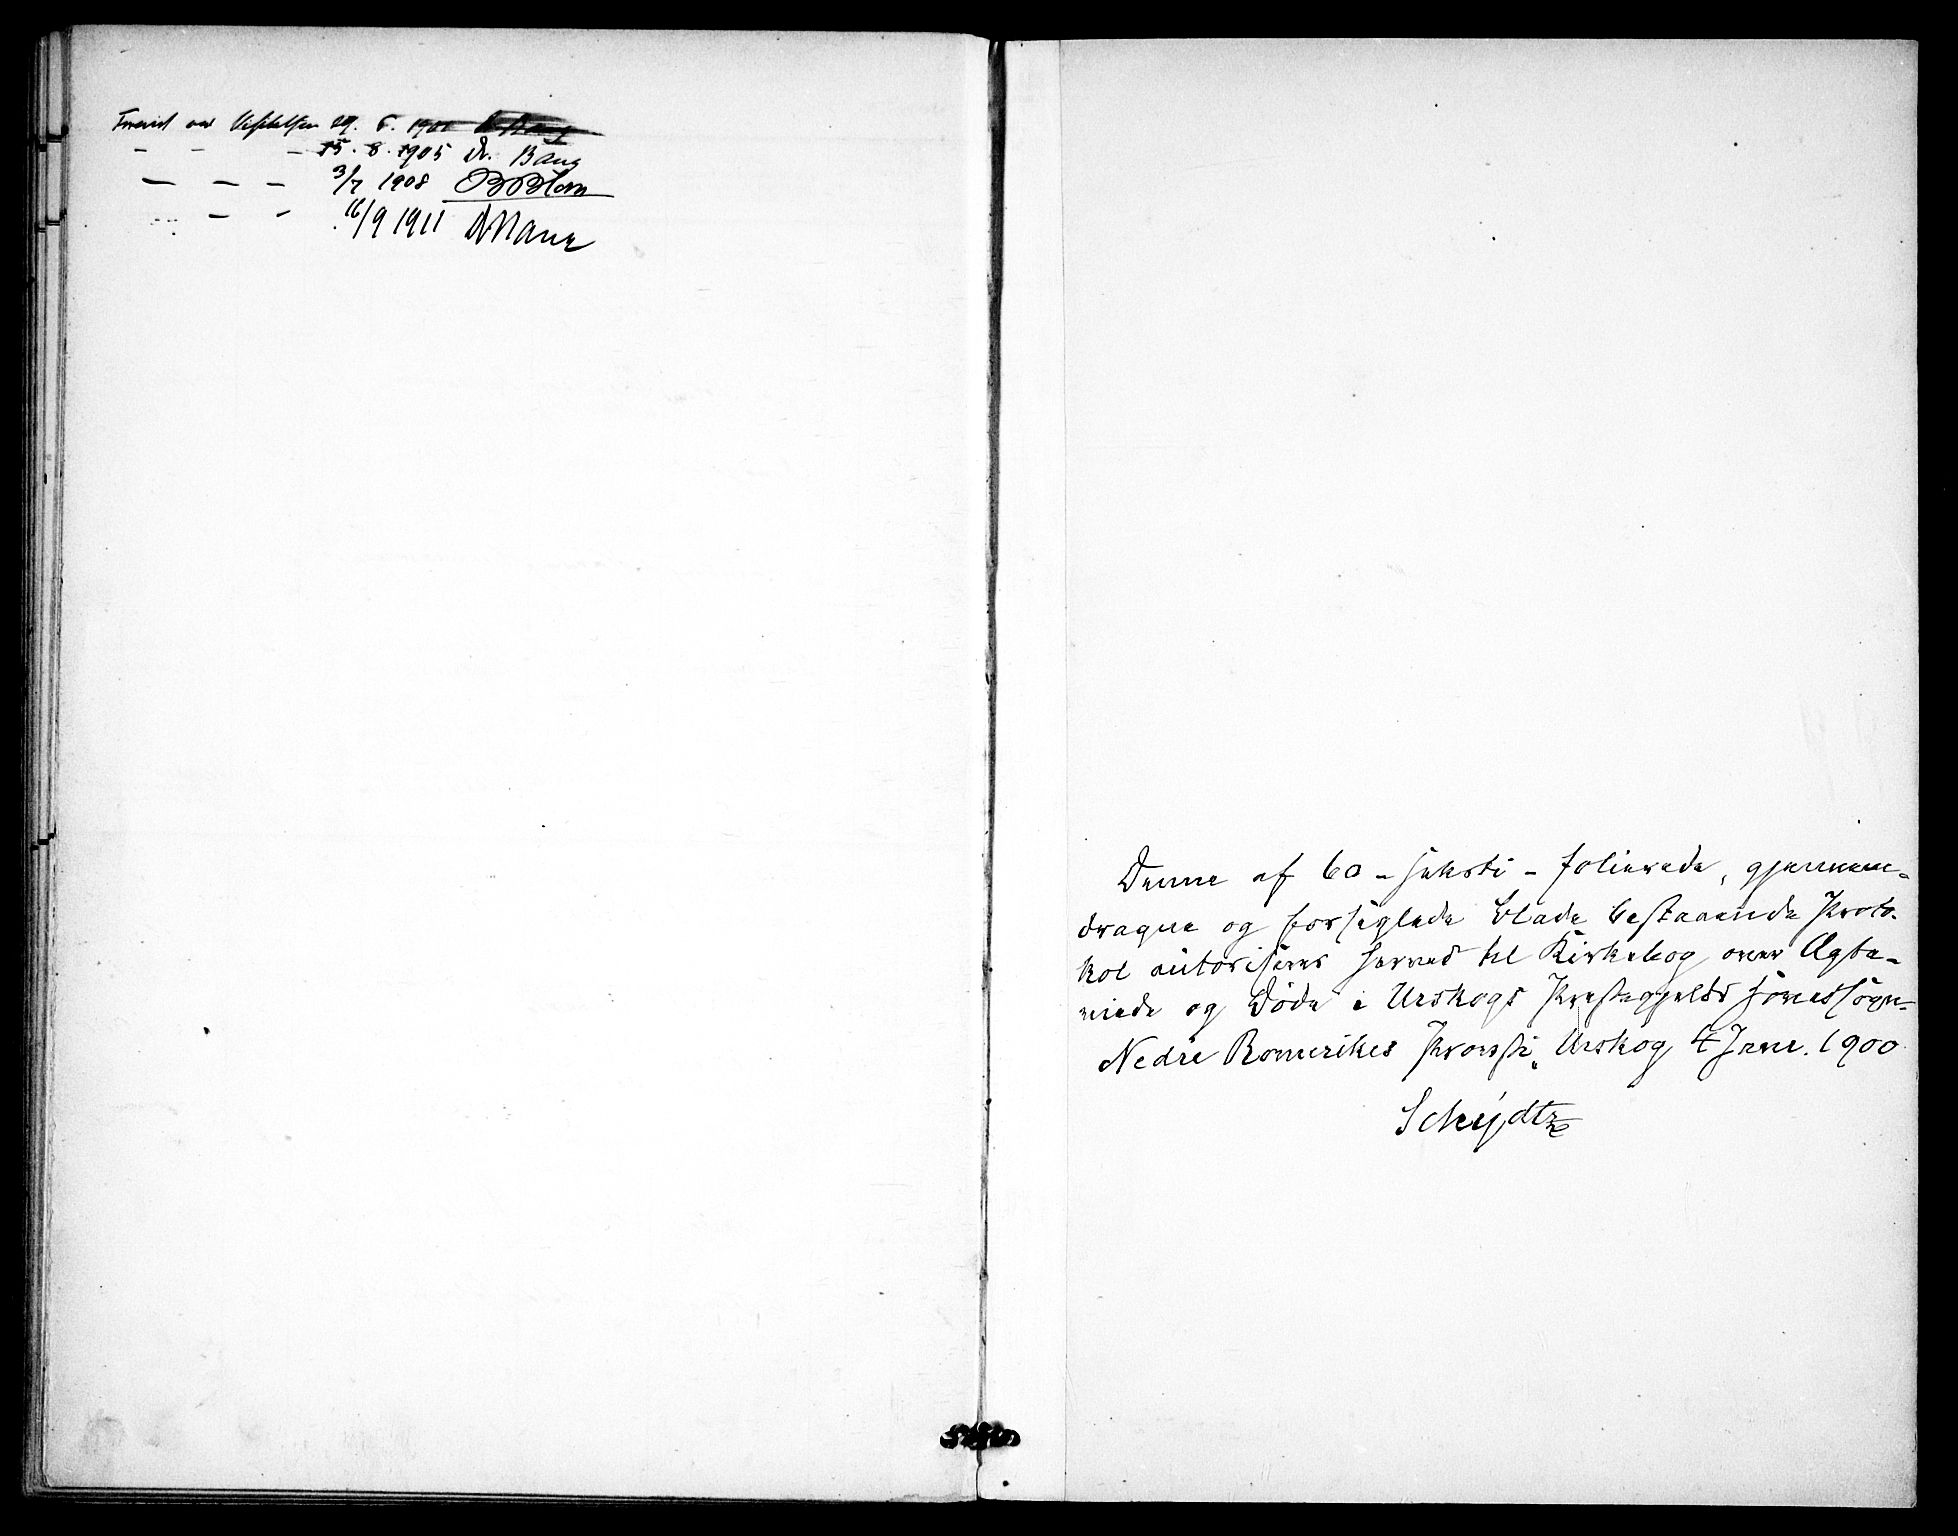 Fremvist ved Visitatsen 29. 6. 1901
- - - 15. 8. 1905 Dr. Bang
- - - 3/7 1908
- - 16/9 1911
Denne af 60 - seksti - folierede, gjennem-
dragne og forseglede Blade bestaaende Proto-
kol autoriseres herved til Kirkebog over Ægte-
viede og Døde i Urskogs Præstegjelds Hovedsogn
Nedre Romerikes Provsti, Urskog 4 Janr. 1900